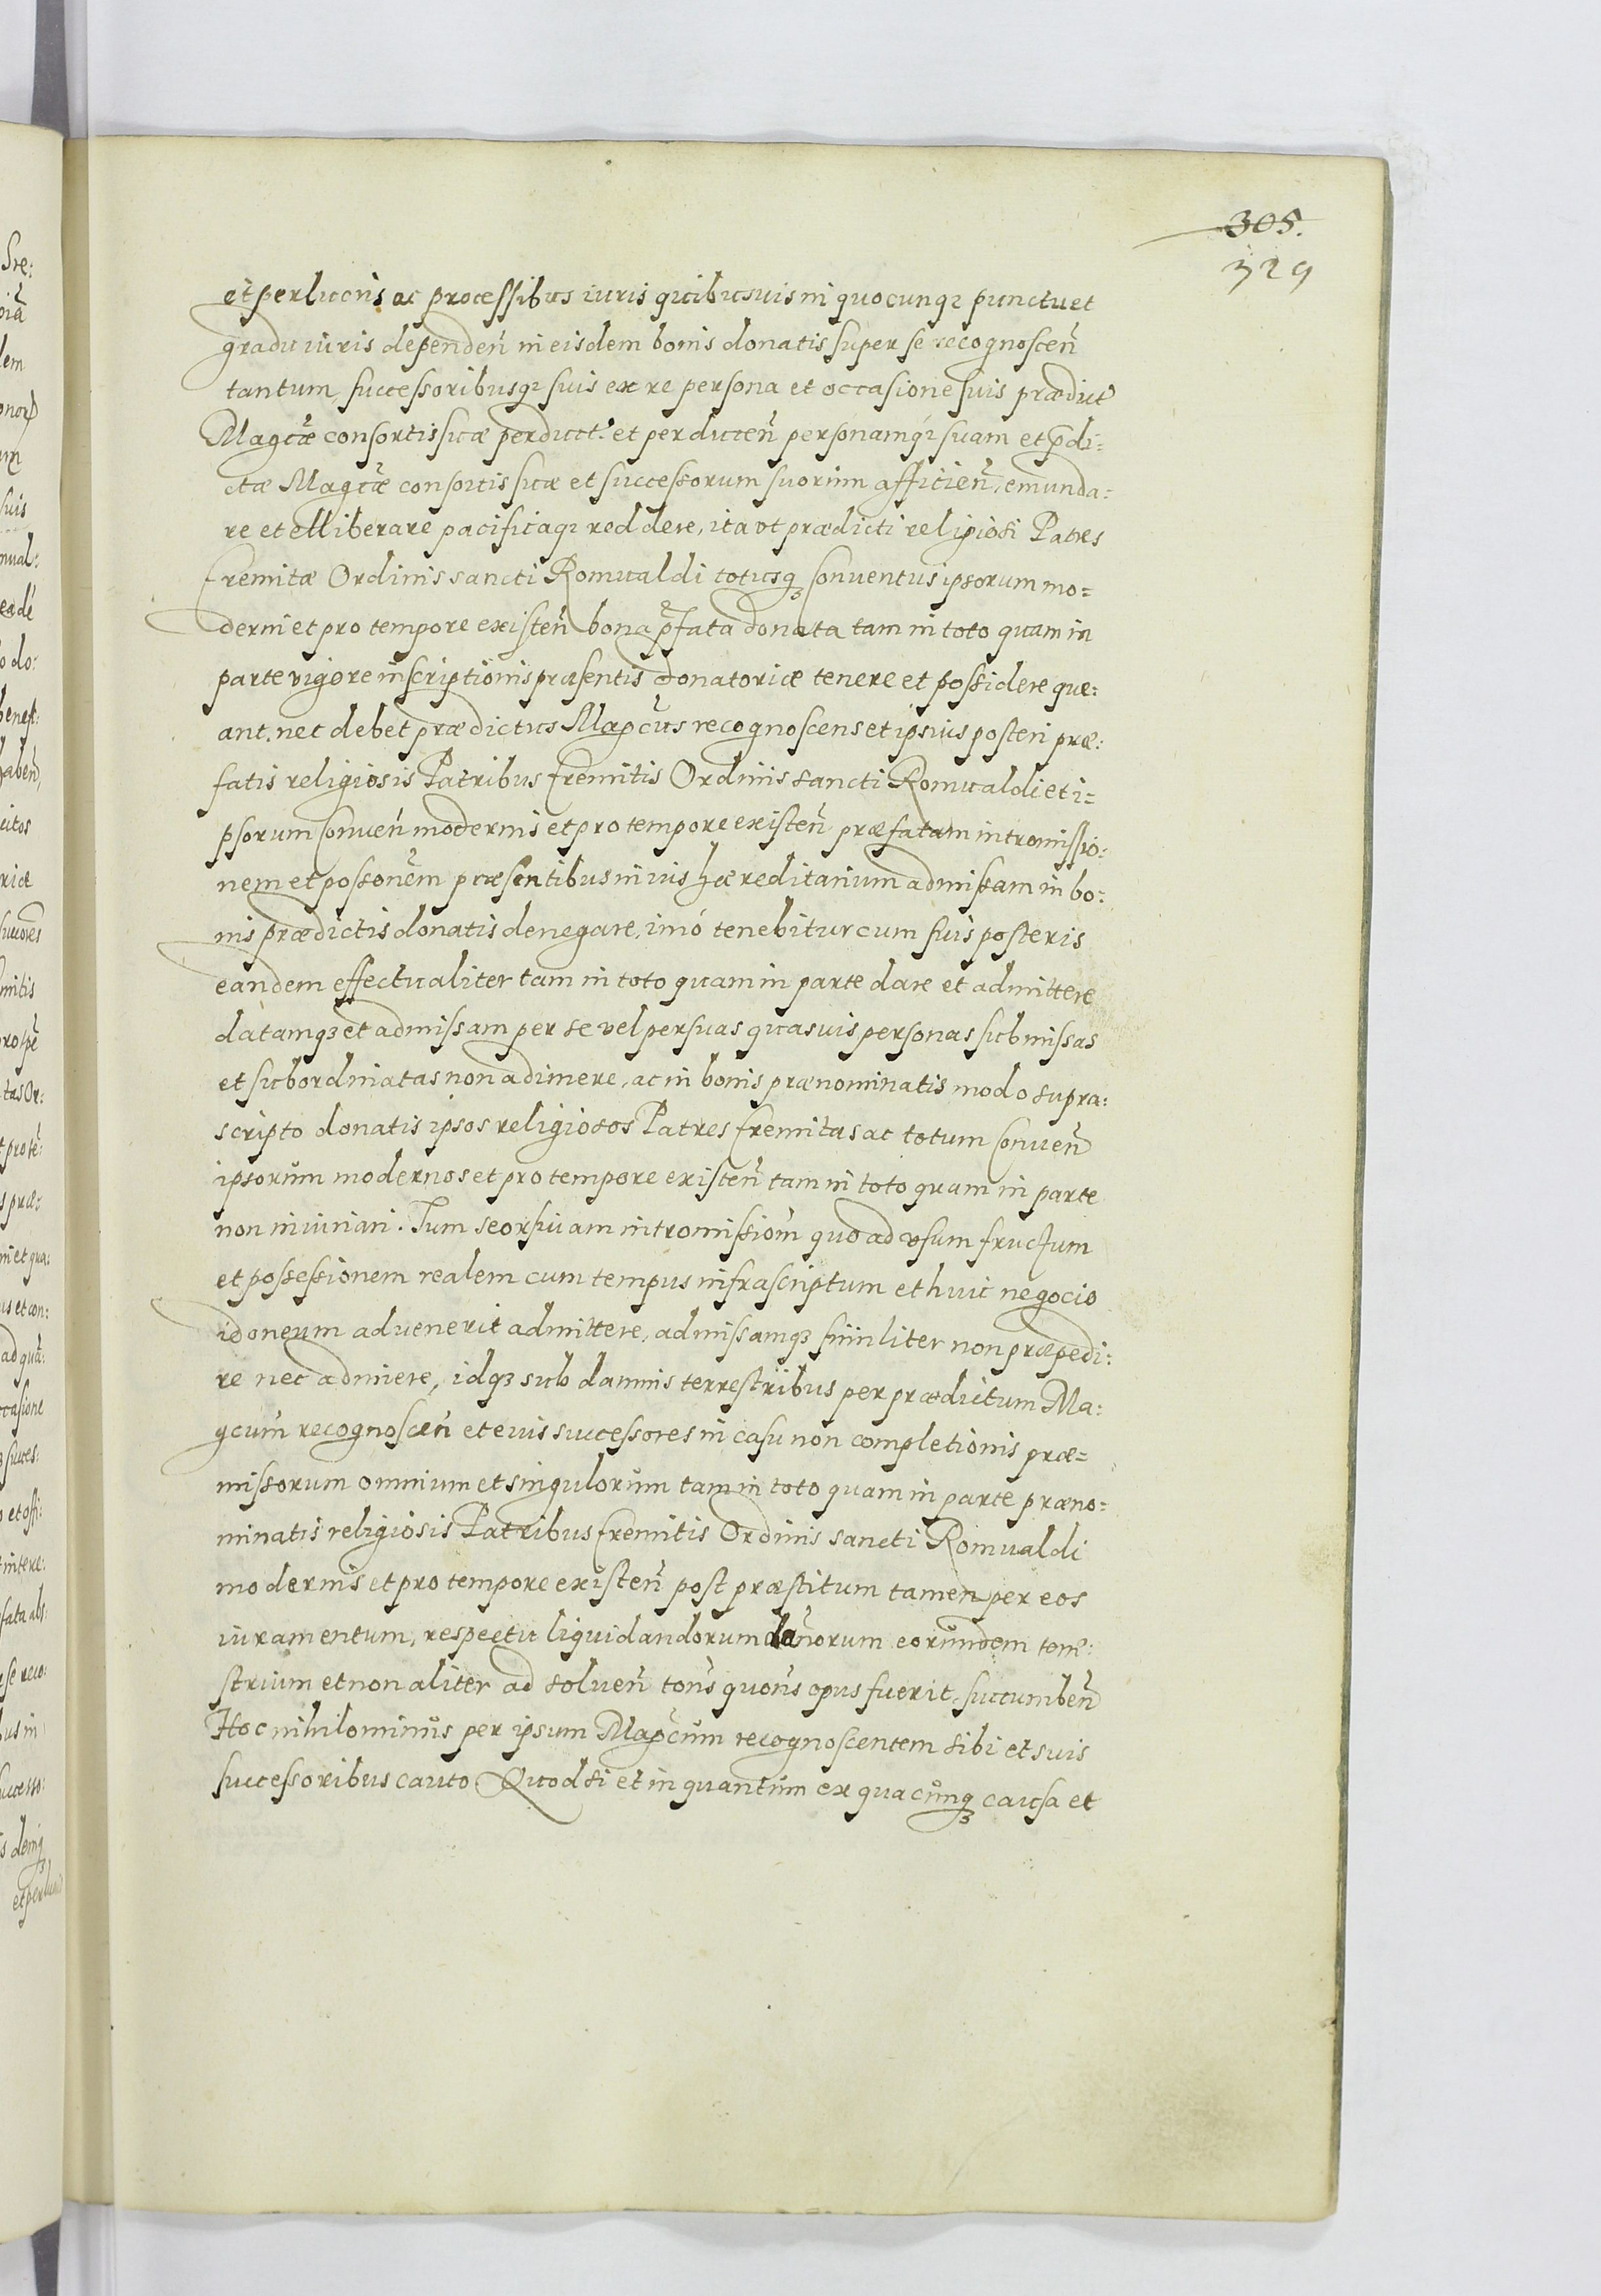 305.
329
et perlucris ac processibus iuris quibusuis in quocunq3 punctu et
gradu iuris dependeñ in eisdem bonis donatis super se recognosceñ
tantum, successoribusq3 suis ex re persona et occasione suis prædict
Magcæ consortis suæ perduct. et perduceñ personamq3 suam et p̃di=
ctæ Magcæ consortis suæ et successorum suorum afficieñ, emunda=
re et elliberare pacificaq3 reddere, ita vt prædicti religiosi Patres
Eremitæ Ordinis sancti Romualdi totusq3 Conuentus ipsorum mo=
derni et pro tempore existeñ bona p̃fata donata tam in toto quam in
parte vigore inscriptionis præsentis donatoriæ tenere et possidere que=
ant. nec debet prædictus Magcus recognoscens et ipsius posteri præ=
fatis religiosis Patribus Eremitis Ordinis sancti Romualdi et i=
psorum Conueñ modernis et pro tempore existeñ præfatam intromissio=
nem et possonem præsentibus in ius hæreditarium admissam in bo=
nis prædictis donatis denegare, imó tenebitur cum suis posteris
eandem effectualiter tam in toto quam in parte dare et admittere
datamq3 et admissam per se vel per suas quasuis personas submissas
et subordinatas non adimere, ac in bonis prænominatis modo supra=
scripto donatis ipsos religiosos Patres Eremitas ac totum Conueñ
ipsorum modernos et pro tempore existeñ tam in toto quam in parte
non iniuriari. Tum seorsiuam intromissiom quo ad vsum fructum
et possessionem realem cum tempus infrascriptum et huic negocio
idoneum aduenerit admittere, admissamq3 similiter non præpedi=
re nec adimere, idq3 sub damnis terrestribus per prædictum Ma=
gcum recognosceñ et eius successores in casu non completionis præ=
missorum omnium et singulorum tam in toto quam in parte præno=
minatis religiosis Patribus Eremitis Ordinis sancti Romualdi
modernis et pro tempore existeñ post præstitum tamen per eos
iuramentum, respectu liquidandorum dañorum eorundem terre=
strium et non aliter ad solueñ tons quons opus fuerit, succumbeñ
Hoc nihilominus per ipsum Magcum recognoscentem sibi et suis
successoribus cauto Quod si et in quantum ex quacunq3 causa et